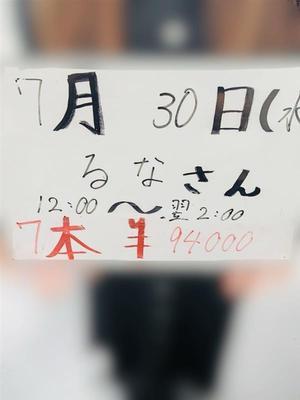 7月 30日(水
るなさん
12:00〜翌2:00
7本半 94000